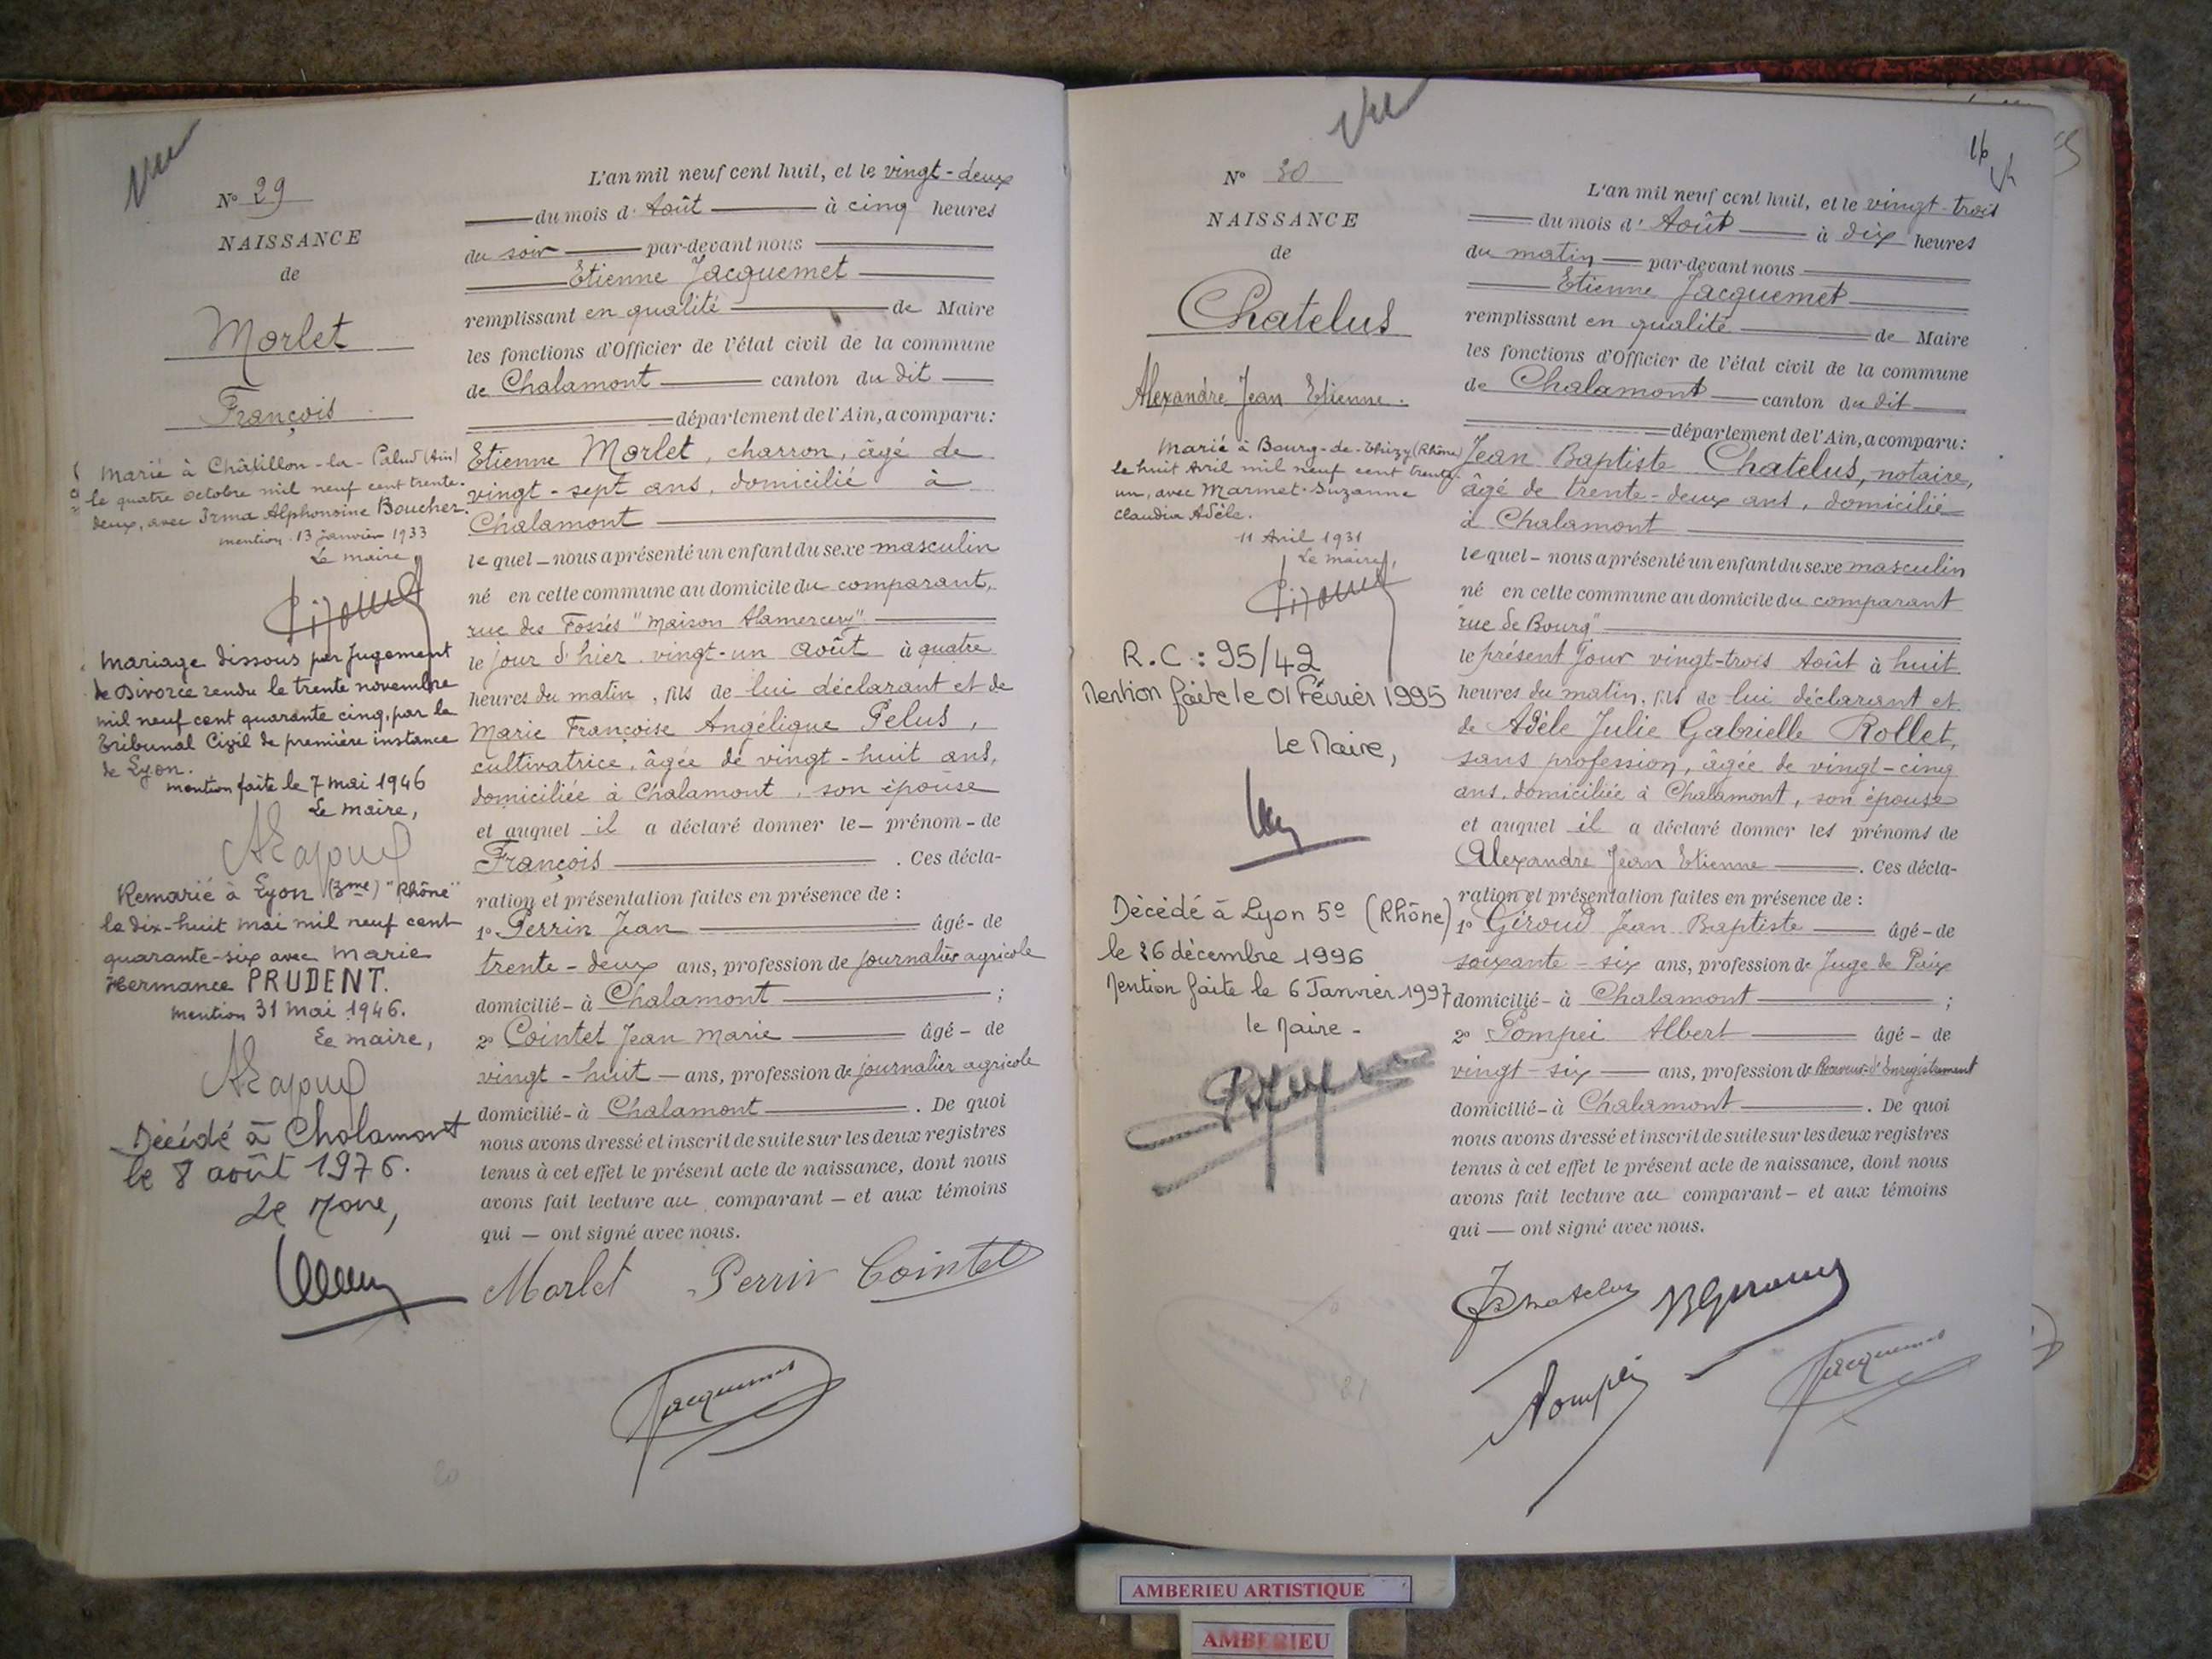 Vu
N° 29
NAISSANCE
de
Morlet
François
Marié à Châtillon-la-Palud (Ain)
le quatre octobre mil neuf cent trente-
deux, avec Irma Alphonsine Boucher.
mention 13 janvier 1933
Le maire,
Mariage dissous par Jugement
de Divorce rendu le trente novembre
mil neuf cent quarante cinq, par le
Tribunal Civil de première instance
de Lyon.
mention faite le 7 mai 1946
Le maire,
Remarié à Lyon (3me) "Rhône"
le dix-huit mai mil neuf cent
quarante-six avec Marie
Hermance PRUDENT.
mention 31 mai 1946.
Le maire,
Décédé à Chalamont
le 8 août 1976.
Le Maire,
L'an mil neuf cent huit, et le vingt-deux
du mois d' Août à cinq heures
du soir par-devant nous
Etienne Jacquemet
remplissant en qualité de Maire
les fonctions d'Officier de l'état civil de la commune
de Chalamont canton du dit
département de l'Ain, a comparu:
Etienne Morlet, charron, âgé de
vingt-sept ans, domicilié à
Chalamont
le quel - nous a présenté un enfant du sexe masculin
né en cette commune au domicile du comparant,
rue des Fossés "Maison Alamercery"
le jour d'hier vingt-un août à quatre
heures du matin, fils de lui déclarant et de
Marie Françoise Angélique Pelus,
cultivatrice, âgée de vingt-huit ans,
domiciliée à Chalamont, son épouse
et auquel il a déclaré donner le - prénom - de
François . Ces décla-
ration et présentation faites en présence de :
1° Perrin Jean âgé - de
trente-deux ans, profession de journalier agricole
domicilié - à Chalamont ;
2° Cointet Jean Marie âgé - de
vingt-huit - ans, profession de journalier agricole
domicilié - à Chalamont . De quoi
nous avons dressé et inscrit de suite sur les deux registres
tenus à cet effet le présent acte de naissance, dont nous
avons fait lecture au comparant - et aux témoins
qui - ont signé avec nous.
Morlet Perrin Cointet
Jacquemet
Vu
16
N° 30
NAISSANCE
de
Chatelus
Alexandre Jean Etienne.
Marié à Bourg-de-Thizy (Rhône)
le huit Avril mil neuf cent trente-
un, avec Marmet Suzanne
Claudia Adèle.
11 Avril 1931
Le maire,
R.C.: 95/42
Mention faite le 01 Février 1995
Le Maire,
Décédé à Lyon 5e (Rhône)
le 26 décembre 1996
Mention faite le 6 Janvier 1997
le Maire -
L'an mil neuf cent huit, et le vingt-trois
du mois d' Août à dix heures
du matin par-devant nous
Etienne Jacquemet
remplissant en qualité de Maire
les fonctions d'Officier de l'état civil de la commune
de Chalamont canton du dit
département de l'Ain, a comparu:
Jean Baptiste Chatelus, notaire,
âgé de trente-deux ans, domicilié
à Chalamont
le quel - nous a présenté un enfant du sexe masculin
né en cette commune au domicile du comparant
"rue de Bourg"
le présent jour vingt-trois Août à huit
heures du matin, fils de lui déclarant et
de Adèle Julie Gabrielle Rollet,
sans profession, âgée de vingt-cinq
ans, domiciliée à Chalamont, son épouse
et auquel il a déclaré donner les prénoms de
Alexandre Jean Etienne . Ces décla-
ration et présentation faites en présence de :
1° Giroud Jean Baptiste âgé - de
soixante-six ans, profession de Juge de Paix
domicilié - à Chalamont ;
2° Pompei Albert âgé - de
vingt-six ans, profession de Receveur d'Enregistrement
domicilié - à Chalamont . De quoi
nous avons dressé et inscrit de suite sur les deux registres
tenus à cet effet le présent acte de naissance, dont nous
avons fait lecture au comparant - et aux témoins
qui - ont signé avec nous.
JBChatelus BGiroud
Pompei Jacquemet
AMBERIEU ARTISTIQUE
AMBERIEU